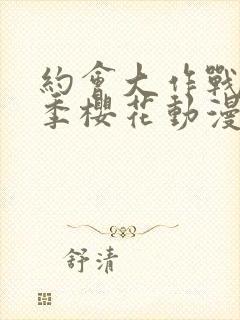 約會大作戰
季櫻花動漫
舒清